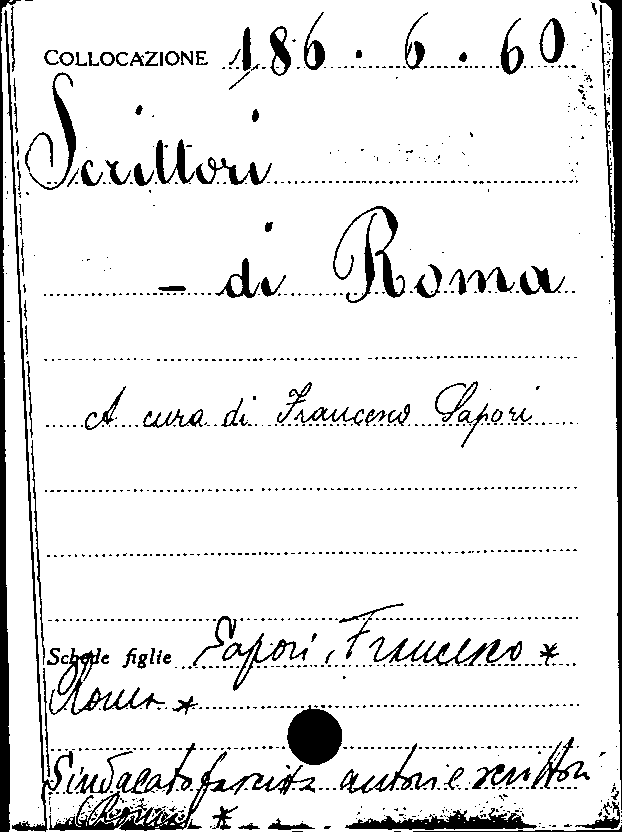 COLLOCAZIONE 186.6.60
Scrittori
- di Roma
A cura di Francesco Sapori
Schede figlie Sapori, Francesco *
Roma *
Sindacato fascista autori e scrittori
(Roma) *